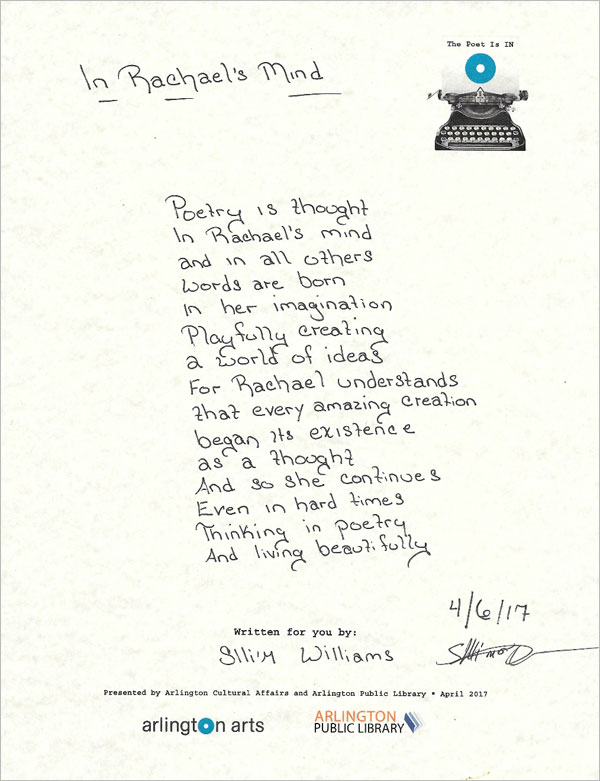 The Poet Is IN
In Rachael's Mind
Poetry is thought
In Rachael's mind
and in all others
Words are born
In her imagination
Playfully creating
a world of ideas
For Rachael understands
that every amazing creation
began its existence
as a thought
And so she continues
Even in hard times
Thinking in poetry
And living beautifully
4/6/17
Written for you by:
Williams
Presented by Arlington Cultural Affairs and Arlington Public Library • April 2017
arlington arts
ARLINGTON
PUBLIC LIBRARY